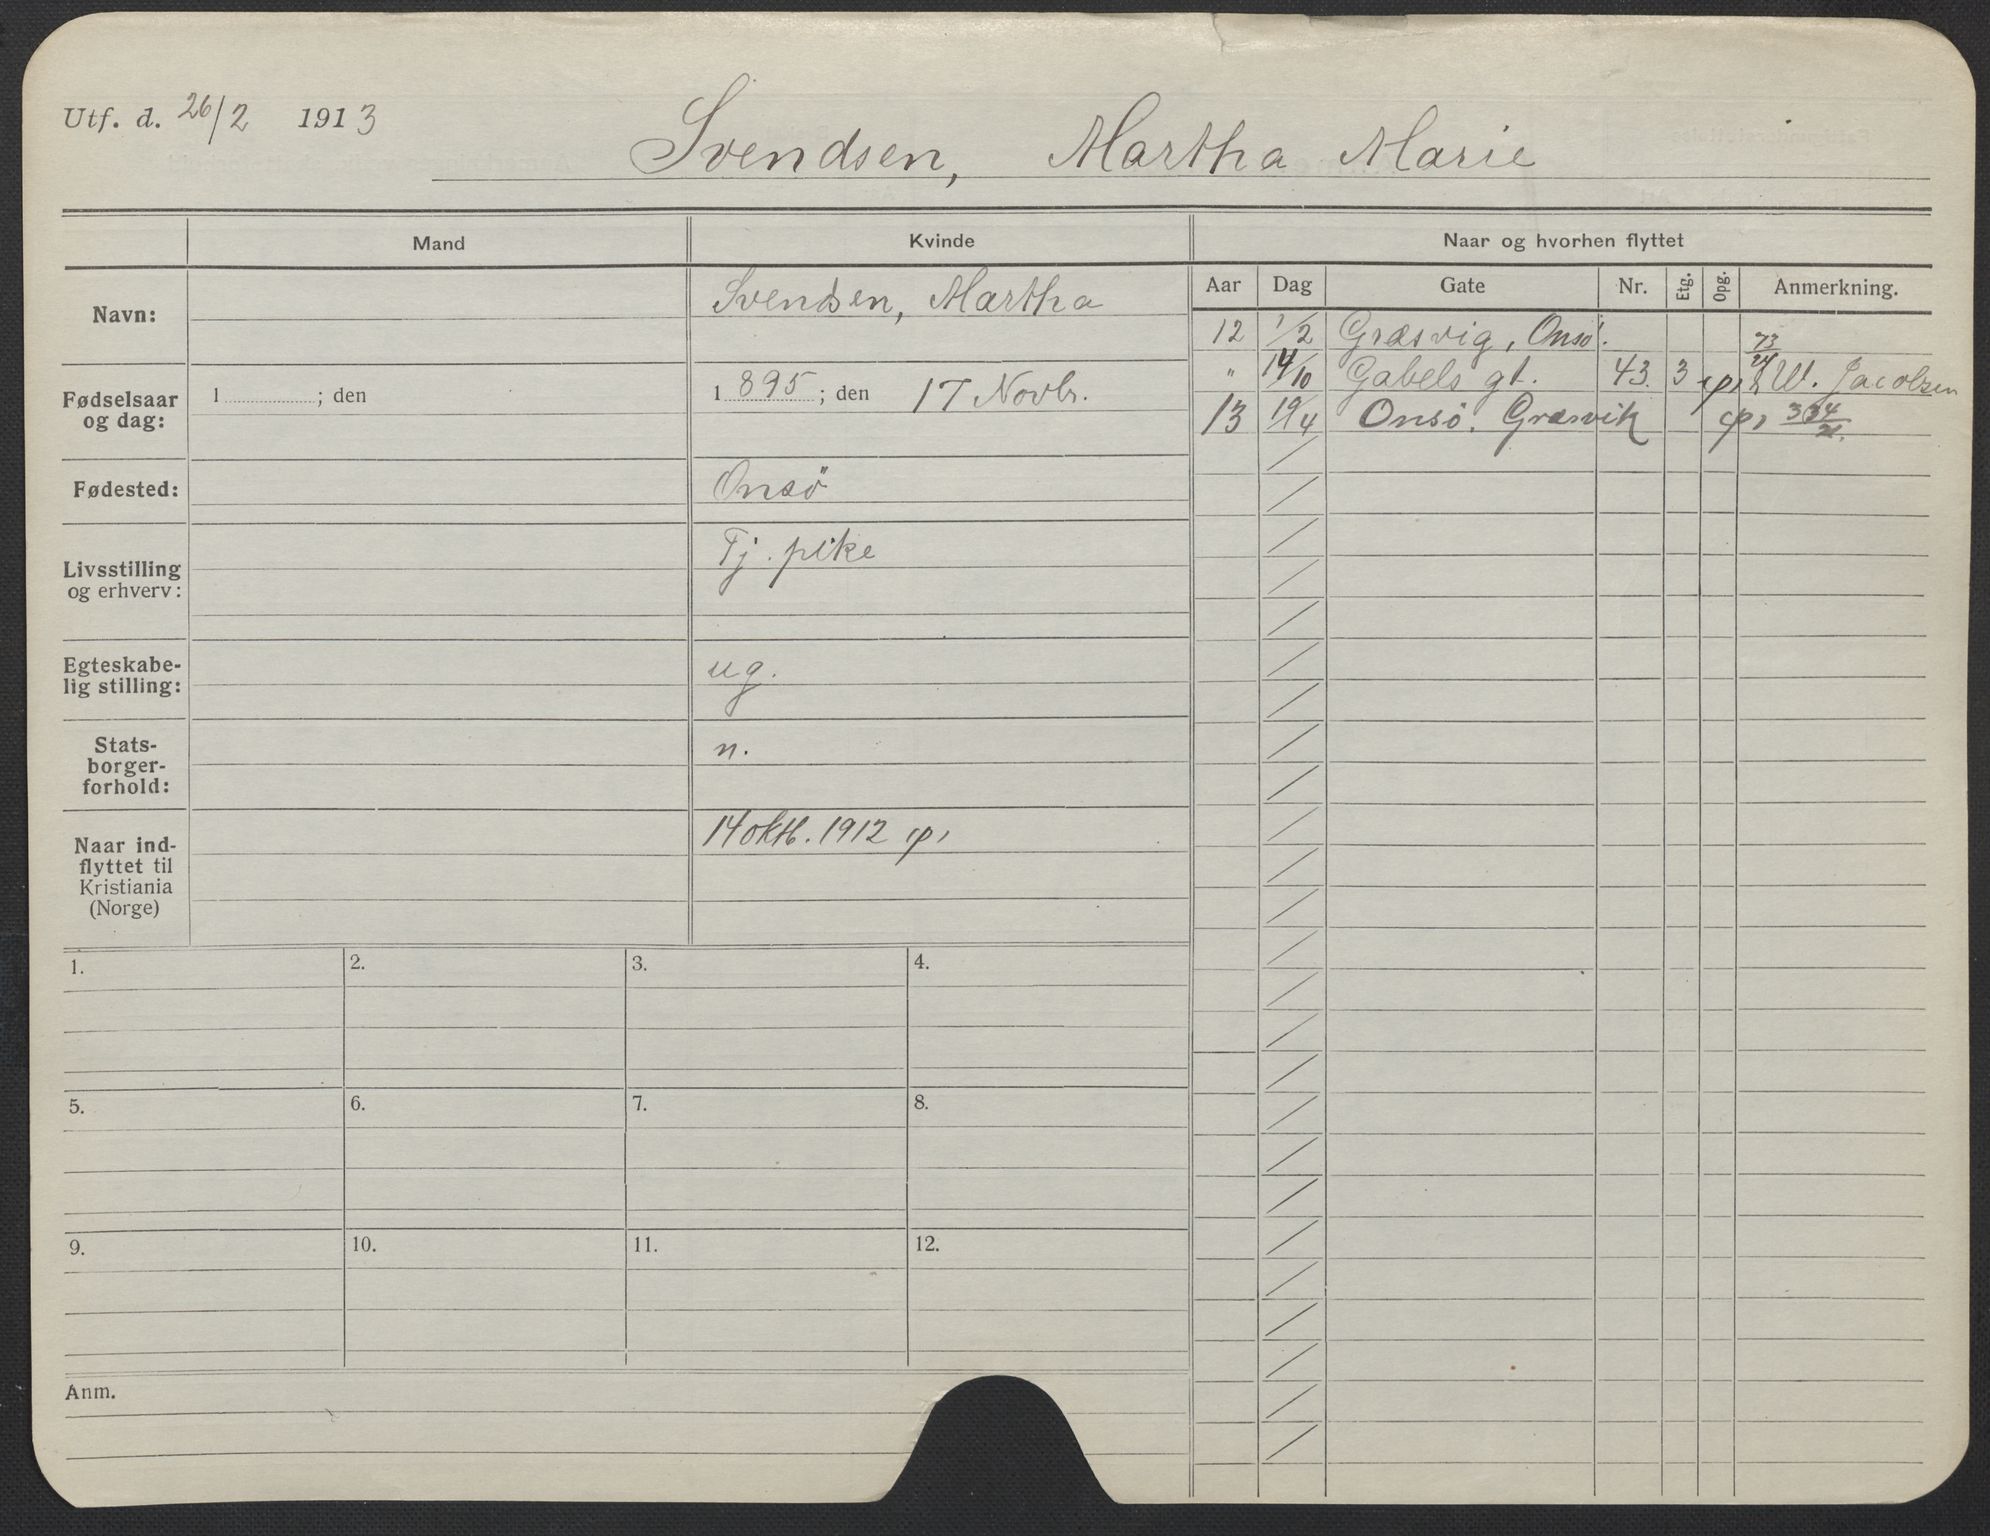 Utf. d. 26/2 1913
Svendsen, Martha Marie
Mand
Kvinde
Naar og hvorhen flyttet
Aar Dag Gate Nr. Etg. Opg. Anmerkning.
Navn:
Svendsen, Martha
Fødselsaar
og dag:
1 ; den
1 895 ; den 17 Novbr.
Fødested:
Onsö
Livsstilling
og erhverv:
Tj. pike
Egteskabe-
lig stilling:
ug.
Stats-
borger-
forhold:
n.
Naar ind-
flyttet til
Kristiania
(Norge)
14 oktb. 1912
12 1/2 Græsvig, Onsö.
" 14/10 Gabels gt. 43 3 W. Jacobsen
13 19/4 Onsö. Græsvik
1. 2. 3. 4.
5. 6. 7. 8.
9. 10. 11. 12.
Anm.